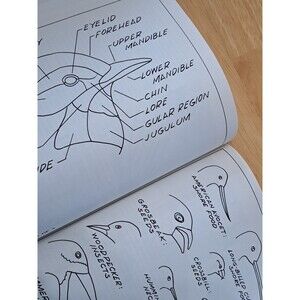 EYELID
FOREHEAD
UPPER
MANDIBLE
LOWER
MANDIBLE
CHIN
LORE
GULAR REGION
JUGULUM
AMERICAN AVOCET:
SHORE FOOD
GROSBEAK:
SEEDS
WOODPECKER:
INSECTS
CROSSBILL:
SEEDS
LONG-BILLED
SHORE FOOD